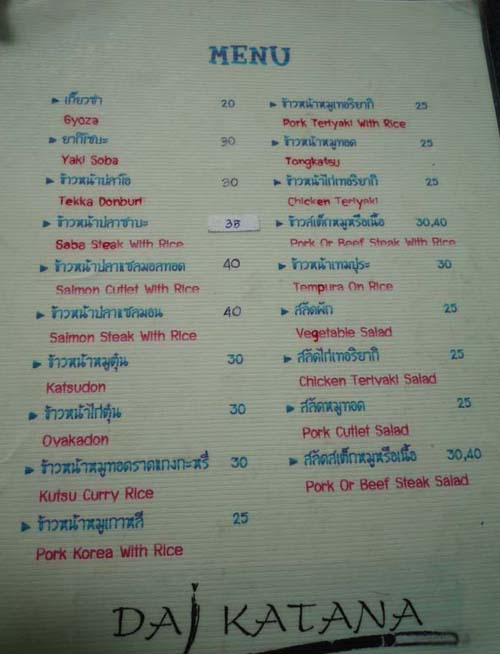 MENU
เกี๊ยวซ่า 20
Gyoza
ยากิโซบะ 30
Yaki Soba
ข้าวหน้าปลาโอ 30
Tekka Donburi
ข้าวหน้าปลาซาบะ 35
Saba Steak With Rice
ข้าวหน้าปลาแซลมอลทอด 40
Salmon Cutlet With Rice
ข้าวหน้าปลาแซลมอน 40
Salmon Steak With Rice
ข้าวหน้าหมูตุ๋น 30
Katsudon
ข้าวหน้าไก่ตุ๋น 30
Oyakadon
ข้าวหน้าหมูทอดราดแกงกะหรี่ 30
Kutsu Curry Rice
ข้าวหน้าหมูเกาหลี 25
Pork Korea With Rice
ข้าวหน้าหมูเทอริยากิ 25
Pork Teriyaki With Rice
ข้าวหน้าหมูทอด 25
Tongkatsu
ข้าวหน้าไก่เทอริยากิ 25
Chicken Teriyaki
ข้าวสเต็กหมูหรือเนื้อ 30,40
Pork Or Beef Steak With Rice
ข้าวหน้าเทมปุระ 30
Tempura On Rice
สลัดผัก 25
Vegetable Salad
สลัดไก่เทอริยากิ 25
Chicken Teriyaki Salad
สลัดหมูทอด 25
Pork Cutlet Salad
สลัดสเต็กหมูหรือเนื้อ 30,40
Pork Or Beef Steak Salad
DAI KATANA